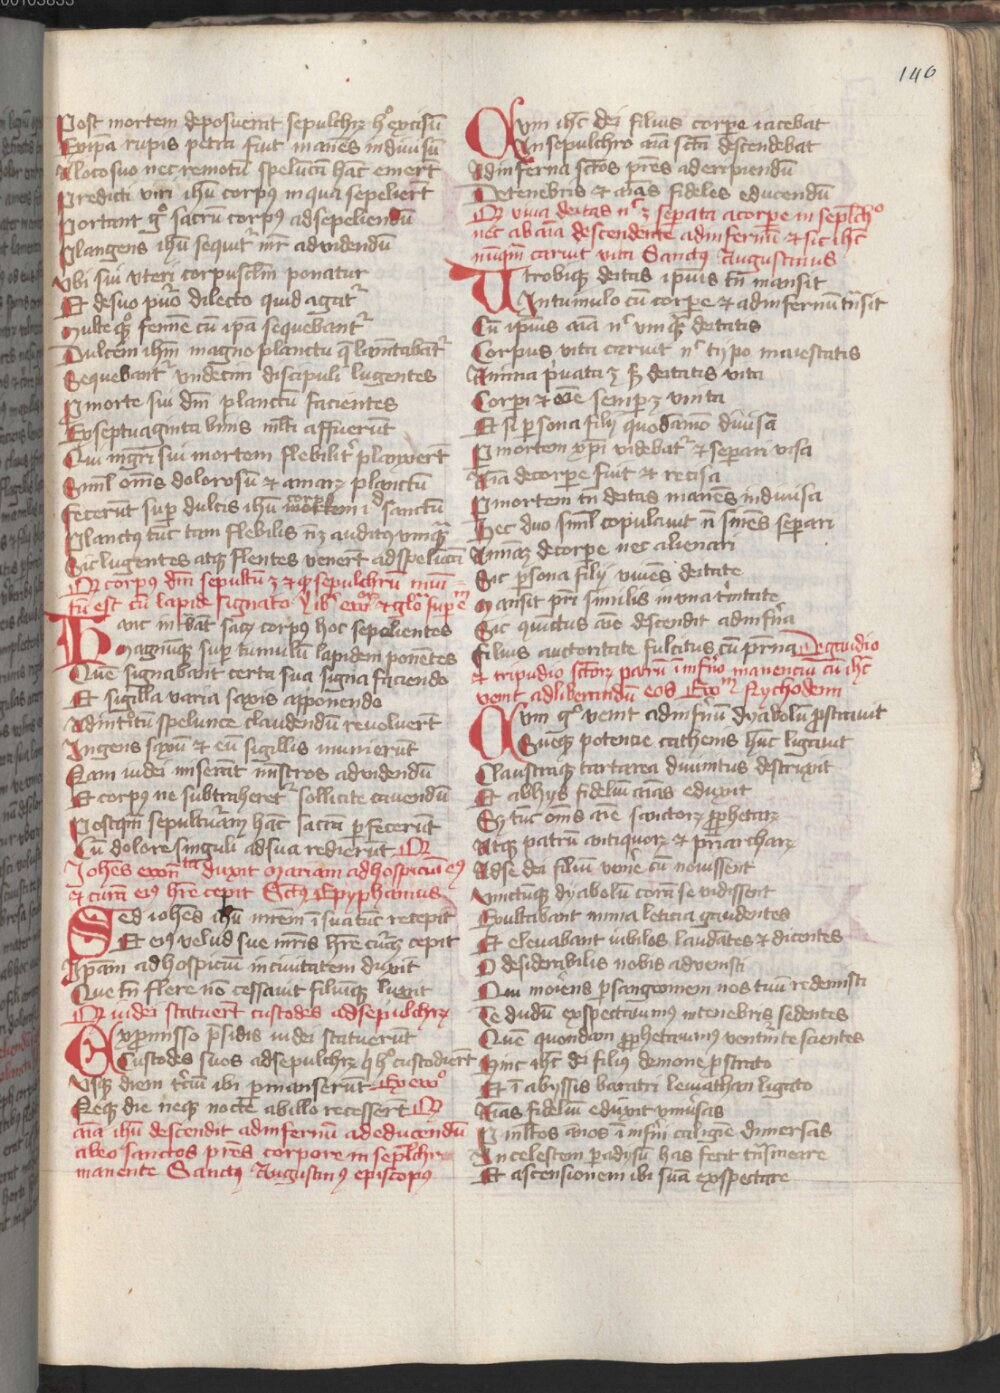 146
Post mortem deposuerat sepulchrum hoc excisum
Ex ipsa rupis petra fuit manens indivisum
A loco suo nec remotum speluncam hanc emerunt
Predicti viri ihesu corpus in qua sepelierunt
Portant ergo sacrum corpus ad sepeliendum
Plangens ihesum sequitur mater ad videndum
Ubi sui uteri corpusculum ponatur
Et de suo puero dilecto quid agatur
Multeque femine cum ipsa sequebantur
Dulcem ihesum magno planctu que lamentabantur
Sequebantur undecim discipuli lugentes
Pro morte sui domini planctum facientes
Ex septuaginta binis multi affuerunt
Qui magistri sui mortem flebiliter planxerunt
Simul omnes dolorosum et amarum planctum
Fecerunt super dulcis ihesu corpus id sanctum
Planctus tunc tam flebilis non est auditus umquam
Sic lugentes atque flentes venerunt ad speluncam
Quod corpus domini sepultum est et quod sepulchrum muni-
tum est cum lapide signato
Hanc intrabant sacrum corpus hoc sepelientes
Magnumque super tumulum lapidem ponentes
Quem signabant certa sua signa faciendo
Et sigilla varia saxis apponendo
Ad introitum spelunce claudendum revolverunt
Ingens saxum et eum sigillis munierunt
Nam iudei miserant ministros ad videndum
Et corpus ne subtraheretur sollicite cavendum
Postquam sepulturam hanc sacram perfecerunt
Cum dolore singuli ad sua redierunt Quod
Johannes ewangelista duxit Mariam ad hospicium eius
et curam eius habere cepit Sanctus Epyphanius
Sed iohannes ihesu matrem in sua tunc recepit
Et eius velud sue matris habere curam cepit
Ipsam ad hospicium in civitatem duxit
Que tamen flere non cessavit filiumque luxit
Quod iudei statuerunt custodes ad sepulchrum
Ex permisso presidis iudei statuerunt
Custodes suos ad sepulchrum qui hoc custodierunt
Usque diem tercium ibi permanserunt Ex ewangelio
Neque die neque nocte ab illo recesserunt Quod
anima ihesu descendit ad infernum ad educendum
ab eo sanctos patres corpore in sepulchro
manente Sanctus Augustinus episcopus
Cum ihesus dei filius corpore iacebat
In sepulchro anima sancta descendebat
Ad inferna sanctos patres ad eripiendum
De tenebris et animas fideles educendum
Quod viva deitas non est separata a corpore in sepulchro
nec ab anima descendente ad infernum et sic ihesus
numquam caruit vita Sanctus Augustinus
Utrobique deitas ipsius tamen mansit
In tumulo cum corpore et ad infernum transit
Cum ipsius anima nec umquam deitatis
Corpus vita caruit nec typo maiestatis
Anima privata est sed deitatis vita
Corpori et anime semper est unita
Et si persona filii quodammodo divisa
Per mortem christi videbatur et separari visa
Anima de corpore fuit et recisa
Per mortem tamen deitas manens indivisa
Hec duo simul copulavit non sinens separari
Animam de corpore nec alienari
Sic persona filii vivens deitate
Mansit patri similis in una trinitate
Sic quietus anime descendit ad inferna
Filius auctoritate fulcitus cum paterna De gaudio
et tripudio sanctorum patrum in inferno manencium cum ihesus
venit ad liberandum eos Ewangelium Nychodemi
Cum ergo venit ad infernum dyabolum prostravit
Sueque potencie cathenis hunc ligavit
Claustraque tartarea divinitus destruxit
Et abhys fidelium animas eduxit
Ex tunc omnes anime sanctorum prophetarum
Atque patrum antiquorum et patriarcharum
Ad se dei filium venire cum novissent
Vinctumque dyabolum coram se vidissent
Exultabant nimia leticia gaudentes
Et elevabant iubilos laudantes et dicentes
O desiderabilis nobis advenisti
Qui moriens per sanguinem nos tuum redemisti
Te dudum exspectavimus in tenebris sedentes
Quem quondam prophetavimus venturum te scientes
Hinc ihesus dei filius demone prostrato
Et in abyssis baratri leviathan ligato
Animas fidelium eduxit universas
Per multos annos in inferni caligine dimersas
In celestem paradysum has fecit transmeare
Et ascensionem ibi suam exspectare